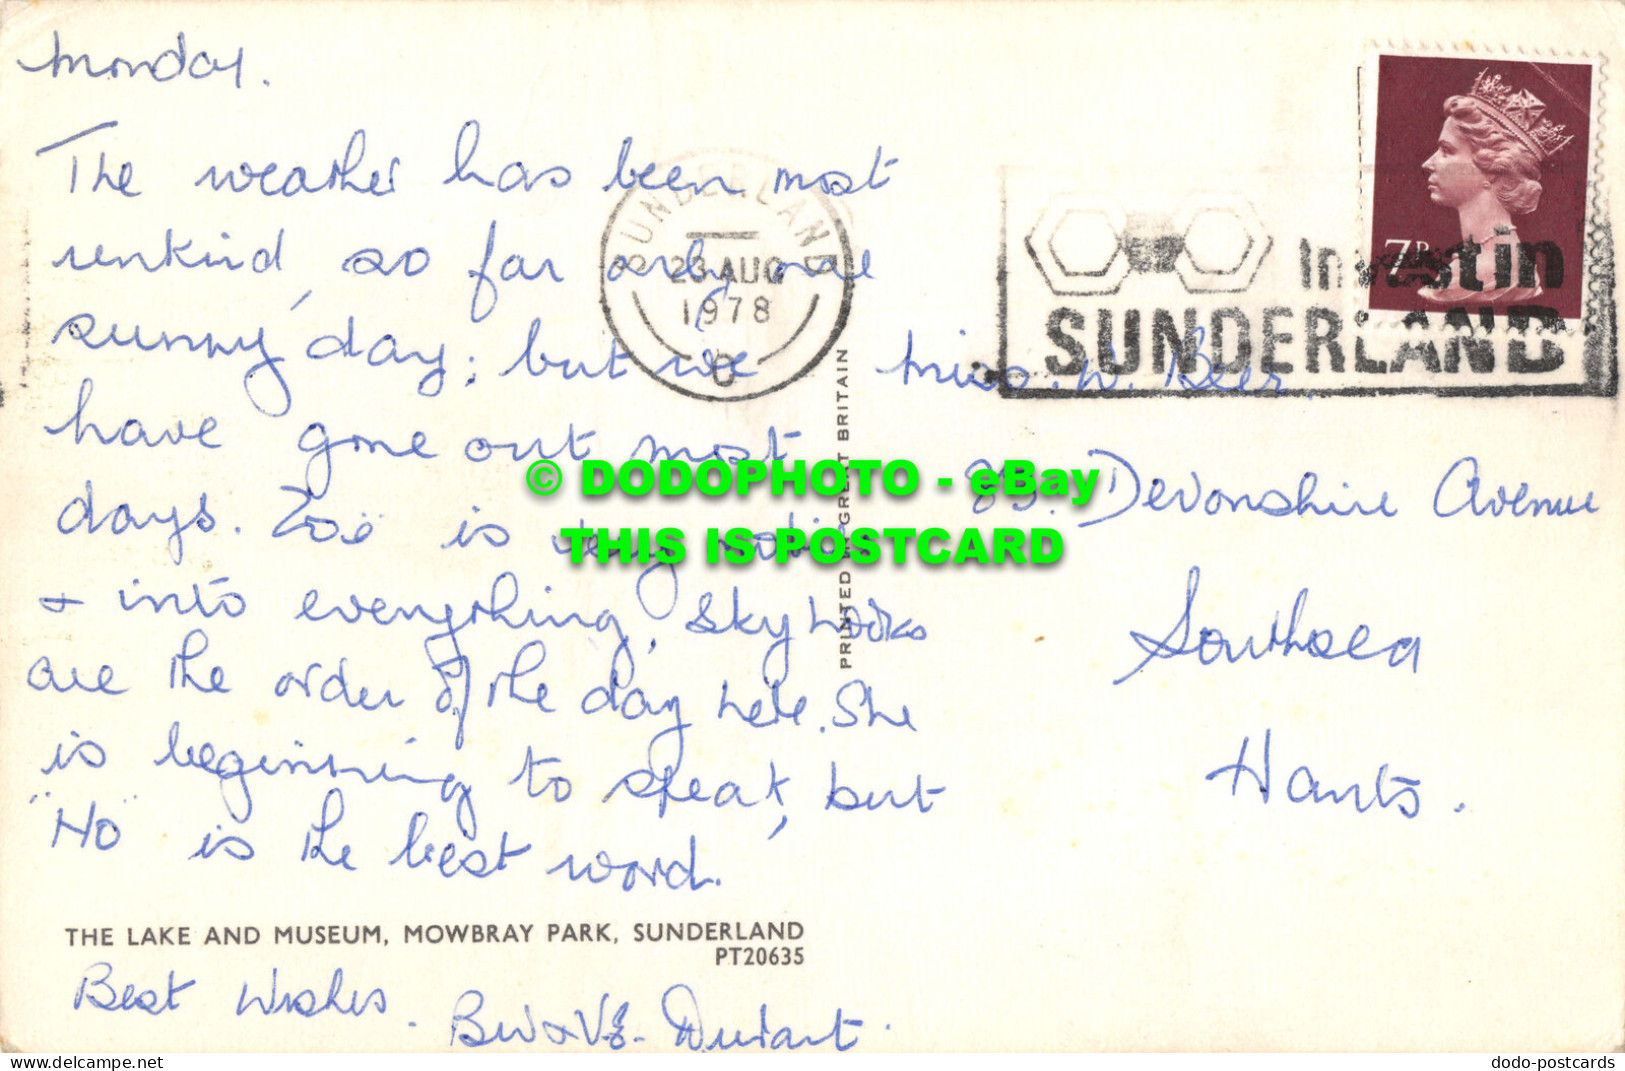 Monday.
The weather has been most
unkind, so far only one
sunny day; but we
have gone out most
days. Zoë is very
& into everything, sky works
are the order of the day here. She
is beginning to speak, but
"No" is the best word.
THE LAKE AND MUSEUM, MOWBRAY PARK, SUNDERLAND
PT20635
Best Wishes.
Durant.
SUNDERLAND
23 AUG
1978
PRINTED IN GREAT BRITAIN
7P
Invest in
SUNDERLAND
Miss. W. Beer.
Devonshire Avenue
Southsea
Hants.
© DODOPHOTO - eBay
THIS IS POSTCARD
https://www.delcampe.net
dodo-postcards